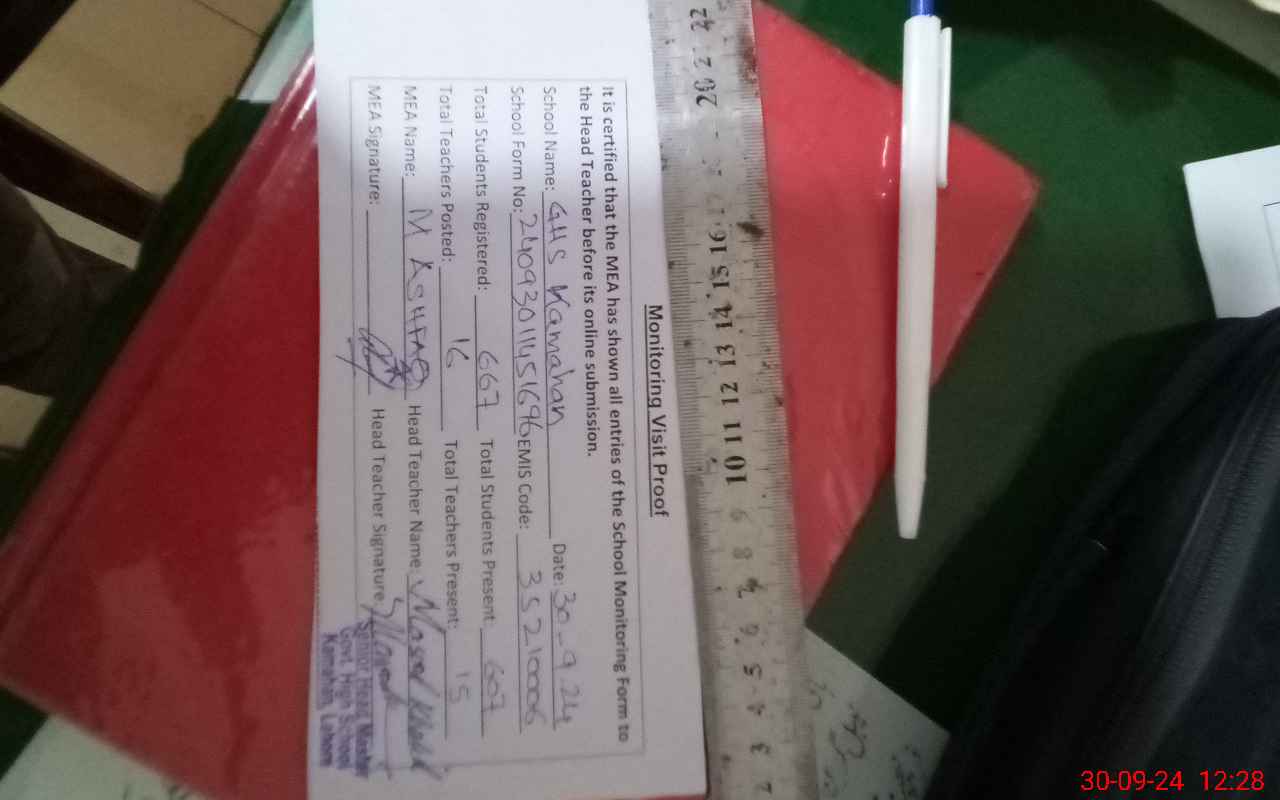 Monitoring Visit Proof
It is certified that the MEA has shown all entries of the School Monitoring Form to
the Head Teacher before its online submission.
School Name: GHS Kamahan Date: 30-9.24
School Form No: 24093011451696 EMIS Code: 35210006
Total Students Registered: 667 Total Students Present: 607
Total Teachers Posted: 16 Total Teachers Present: 15
MEA Name: M ASHFAQ Head Teacher Name: Masood
MEA Signature: Head Teacher Signature:
Senior Head Master
Govt. High School
Kamahan, Lahore
22 20 16 15 14 13 12 11 10 9 8 6 5 4 3 2
30-09-24 12:28